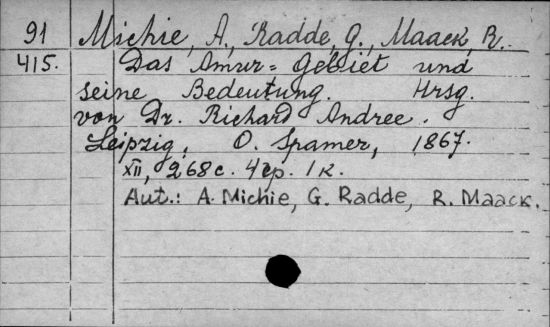 91 Michie, A., Radde, G., Maack, R.
415. Das Amur-Gebiet und
seine Bedeutung. Hrsg.
von Dr. Richard Andree.
Leipzig, O. Spamer, 1867.
XII, 268 c. 4 гр. 1 к.
Aut.: A. Michie, G. Radde, R. Maack.